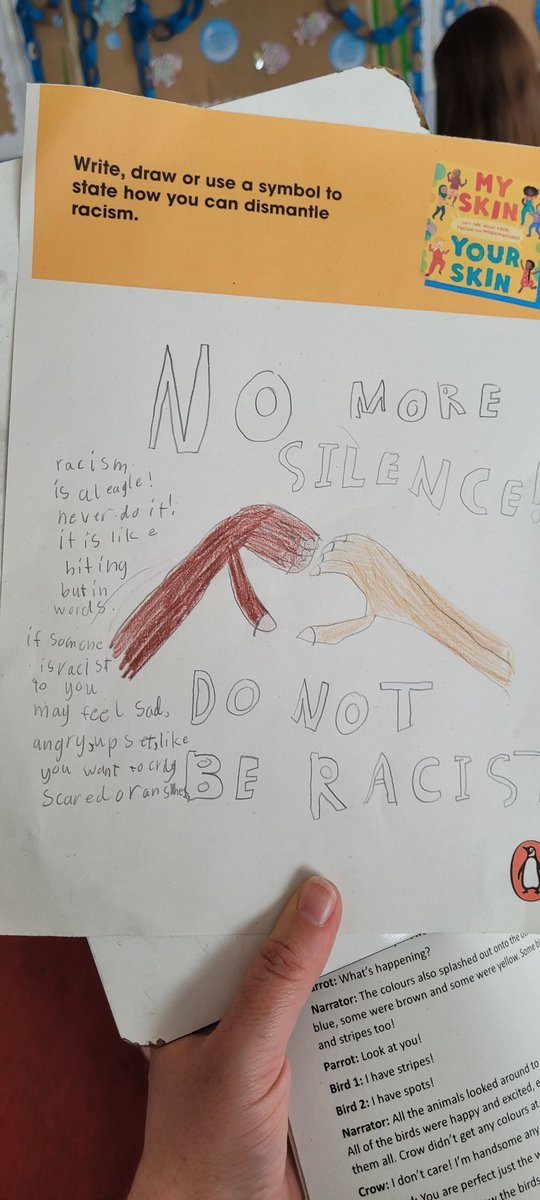 Write, draw or use a symbol to
state how you can dismantle
racism.
MY
SKIN
YOUR
SKIN
NO MORE
SILENCE!
racism
is aleagle!
never do it!
it is like
biting
but in
words.
if somone
is racist
to you
may feel sad,
angry, upset, like
you want to cry
scared or
DO NOT
BE RACIST
Parrot: What's happening?
Narrator: The colours also splashed out onto the
blue, some were brown and some were yellow. Some
and stripes too!
Parrot: Look at you!
Bird 1: I have stripes!
Bird 2: I have spots!
Narrator: All the animals looked around to
All of the birds were happy and excited, e
them all. Crow didn't get any colours at
Crow: I don't care! I'm handsome any
You are perfect just the w
the birds